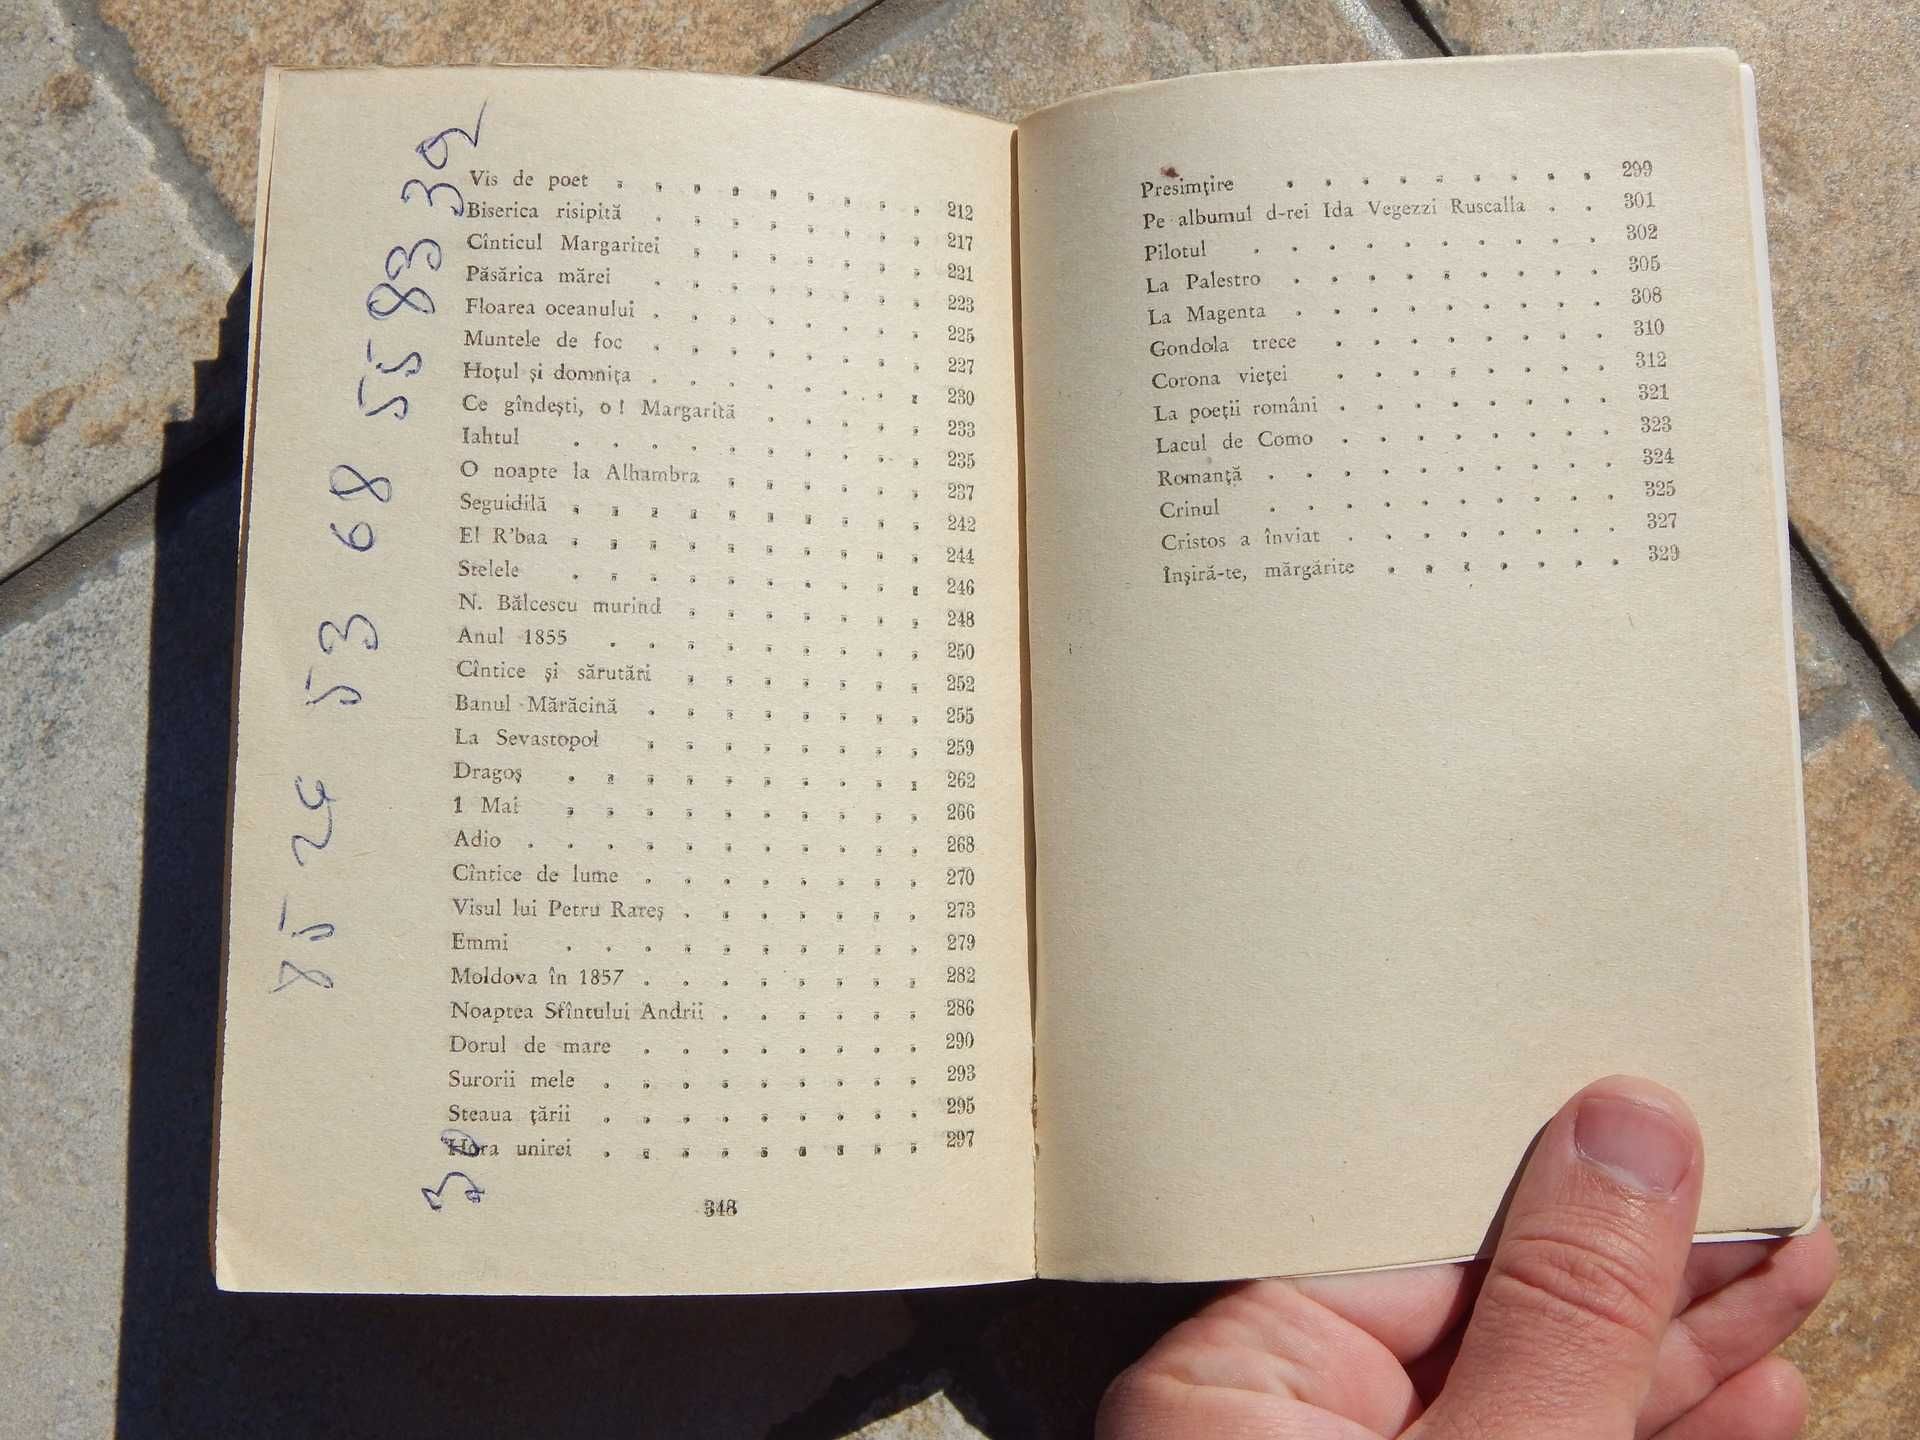 Vis de poet . . . . . . . . . 212
Biserica risipită . . . . . . . . 217
Cînticul Margaritei . . . . . . . 221
Păsărica mărei . . . . . . . . 223
Floarea oceanului . . . . . . . . 225
Muntele de foc . . . . . . . . 227
Hoţul şi domniţa . . . . . . . . 230
Ce gîndeşti, o! Margarită . . . . . 233
Iahtul . . . . . . . . . . 235
O noapte la Alhambra . . . . . . 237
Seguidilă . . . . . . . . . . 242
El R'baa . . . . . . . . . . 244
Stelele . . . . . . . . . . 246
N. Bălcescu murind . . . . . . . 248
Anul 1855 . . . . . . . . . 250
Cîntice şi sărutări . . . . . . . 252
Banul Mărăcină . . . . . . . . 255
La Sevastopol . . . . . . . . 259
Dragoş . . . . . . . . . . 262
1 Mai . . . . . . . . . . 266
Adio . . . . . . . . . . . 268
Cîntice de lume . . . . . . . . 270
Visul lui Petru Rareş . . . . . . . 273
Emmi . . . . . . . . . . 279
Moldova în 1857 . . . . . . . . 282
Noaptea Sfîntului Andrii . . . . . . 286
Dorul de mare . . . . . . . . 290
Surorii mele . . . . . . . . . 293
Steaua ţării . . . . . . . . . 295
Hora unirei . . . . . . . . . 297
348
Presimţire . . . . . . . . . 299
Pe albumul d-rei Ida Vegezzi Ruscalla . . 301
Pilotul . . . . . . . . . . 302
La Palestro . . . . . . . . . 305
La Magenta . . . . . . . . . 308
Gondola trece . . . . . . . . 310
Corona vieţei . . . . . . . . 312
La poeţii români . . . . . . . . 321
Lacul de Como . . . . . . . . 323
Romanţă . . . . . . . . . . 324
Crinul . . . . . . . . . . 325
Cristos a înviat . . . . . . . . 327
Înşiră-te, mărgărite . . . . . . . 329
85 24 53 68 55 83 39